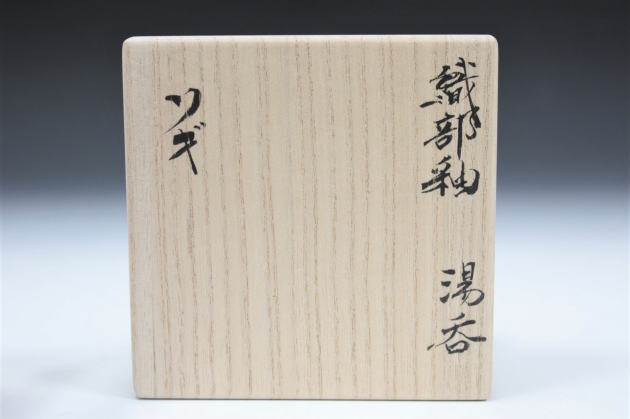 織部釉 湯呑
ソギ